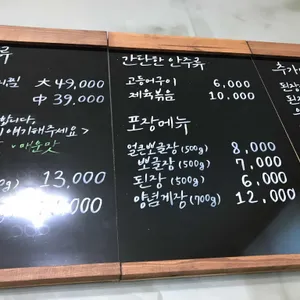 류
찜 大 49,000
中 39,000
합니다.
얘기해주세요>
· 매운맛
g) 13,000
,000
간단한 안주류
고등어구이 6,000
제육볶음 10,000
포장메뉴
얼큰뽀글장 (500g) 8,000
뽀글장 (500g) 7,000
된장 (500g) 6,000
양념게장 (700g) 12,000
추가
된장